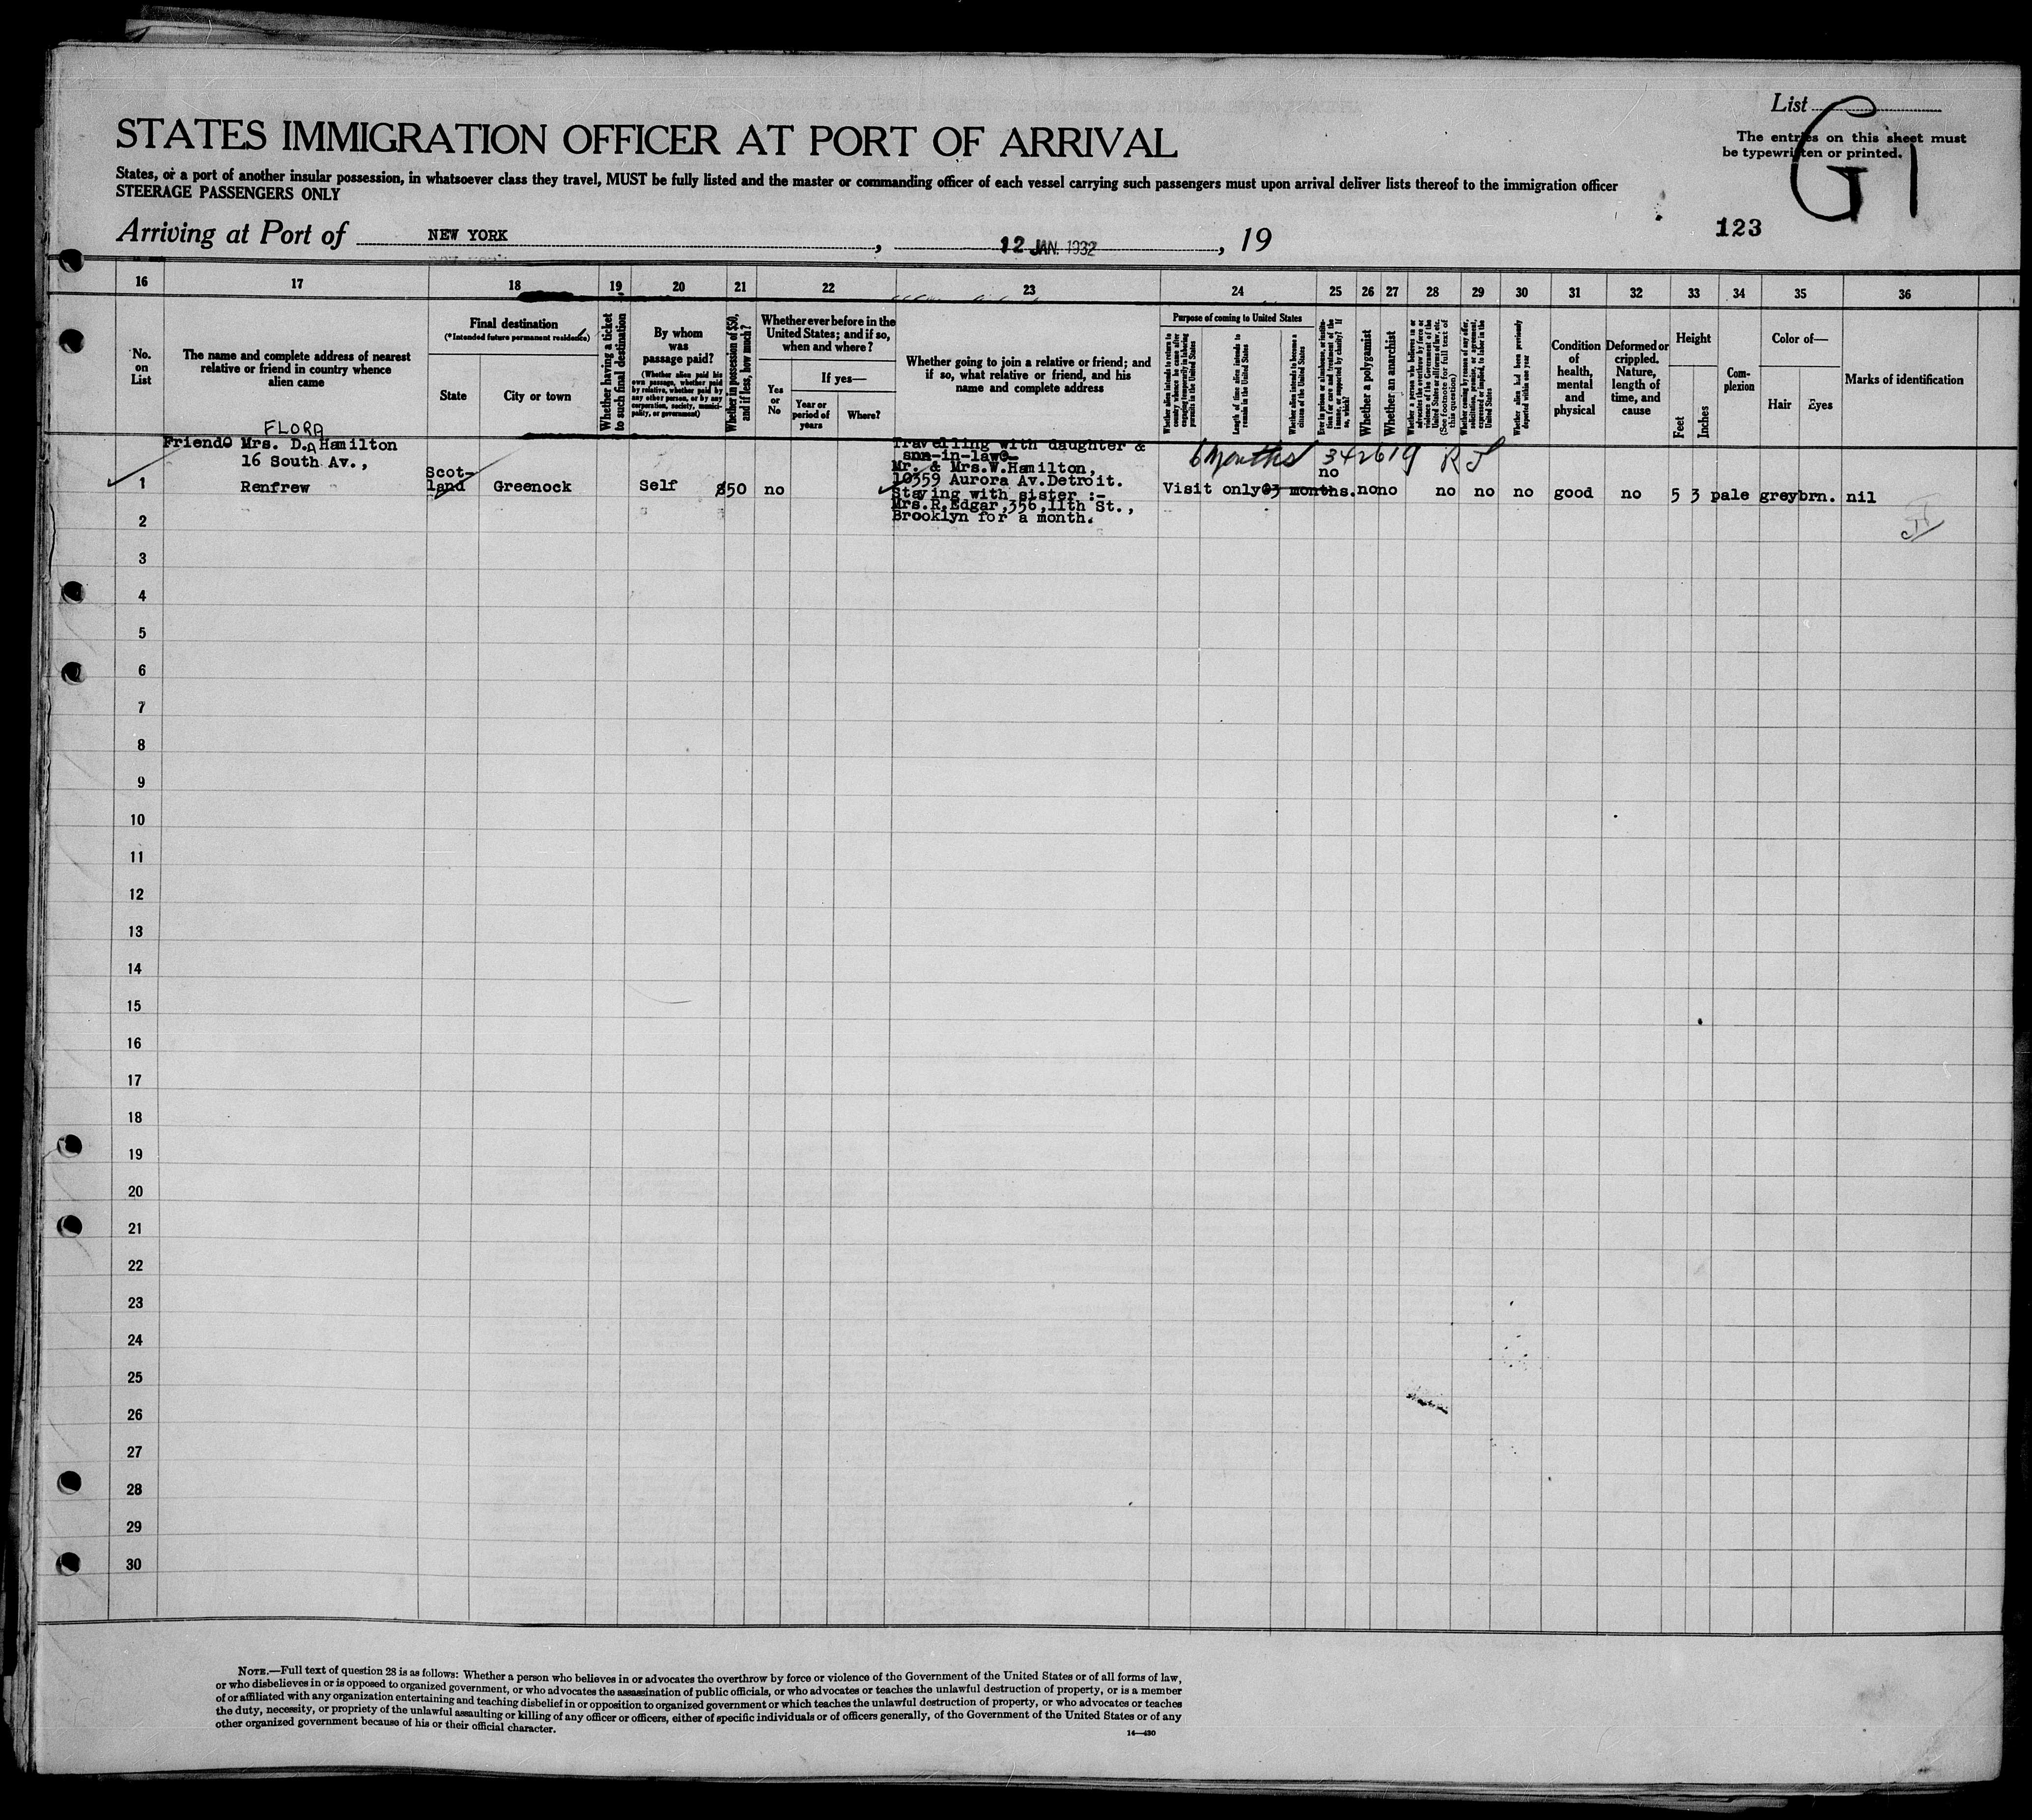 List
G1
The entries on this sheet must
be typewritten or printed.
STATES IMMIGRATION OFFICER AT PORT OF ARRIVAL
States, or a port of another insular possession, in whatsoever class they travel, MUST be fully listed and the master or commanding officer of each vessel carrying such passengers must upon arrival deliver lists thereof to the immigration officer
STEERAGE PASSENGERS ONLY
123
Arriving at Port of NEW YORK, 12 JAN. 1932, 19
16 17 18 19 20 21 22 23 24 25 26 27 28 29 30 31 32 33 34 35 36
No.
on
List
The name and complete address of nearest
relative or friend in country whence
alien came
Final destination
(*Intended future permanent residence)
State
City or town
Whether having a ticket
to such final destination
By whom
was
passage paid?
(Whether alien paid his
own passage, whether paid
by relative, whether paid by
any other person, or by any
corporation, society, munici-
pality, or government)
Whether in possession of $50,
and if less, how much?
Whether ever before in the
United States; and if so,
when and where?
Yes
or
No
If yes—
Year or
period of
years
Where?
Whether going to join a relative or friend; and
if so, what relative or friend, and his
name and complete address
Purpose of coming to United States
Whether alien intends to return to
country whence he came after
engaging temporarily in laboring
pursuits in the United States
Length of time alien intends to
remain in the United States
Whether alien intends to become a
citizen of the United States
Ever in prison or almshouse, or institu-
tion for care and treatment of the
insane, or supported by charity? If
so, which?
Whether a polygamist
Whether an anarchist
Whether a person who believes in or
advocates the overthrow by force or
violence of the Government of the
United States or all forms of law, etc.
(See footnote for full text of
this question)
Whether coming by reason of any offer,
solicitation, promise, or agreement,
expressed or implied, to labor in the
United States
Whether alien had been previously
deported within one year
Condition
of
health,
mental
and
physical
Deformed or
crippled.
Nature,
length of
time, and
cause
Height
Feet
Inches
Com-
plexion
Color of—
Hair
Eyes
Marks of identification
FLORA
Friend Mrs. D. Hamilton
16 South Av.,
Renfrew
Scot-
land
Greenock
Self
$50
no
Travelling with daughter &
son-in-law
Mr. & Mrs.W.Hamilton,
10359 Aurora Av.Detroit.
Staying with sister :-
Mrs.R.Edgar,356,11th St.,
Brooklyn for a month.
6 Months 342619 RJ
no
Visit only 3 months. no no no no no good no 5 3 pale grey brn. nil
1
2
3
4
5
6
7
8
9
10
11
12
13
14
15
16
17
18
19
20
21
22
23
24
25
26
27
28
29
30
NOTE.—Full text of question 28 is as follows: Whether a person who believes in or advocates the overthrow by force or violence of the Government of the United States or of all forms of law,
or who disbelieves in or is opposed to organized government, or who advocates the assassination of public officials, or who advocates or teaches the unlawful destruction of property, or is a member
of or affiliated with any organization entertaining and teaching disbelief in or opposition to organized government or which teaches the unlawful destruction of property, or who advocates or teaches
the duty, necessity, or propriety of the unlawful assaulting or killing of any officer or officers, either of specific individuals or of officers generally, of the Government of the United States or of any
other organized government because of his or their official character.
14—430